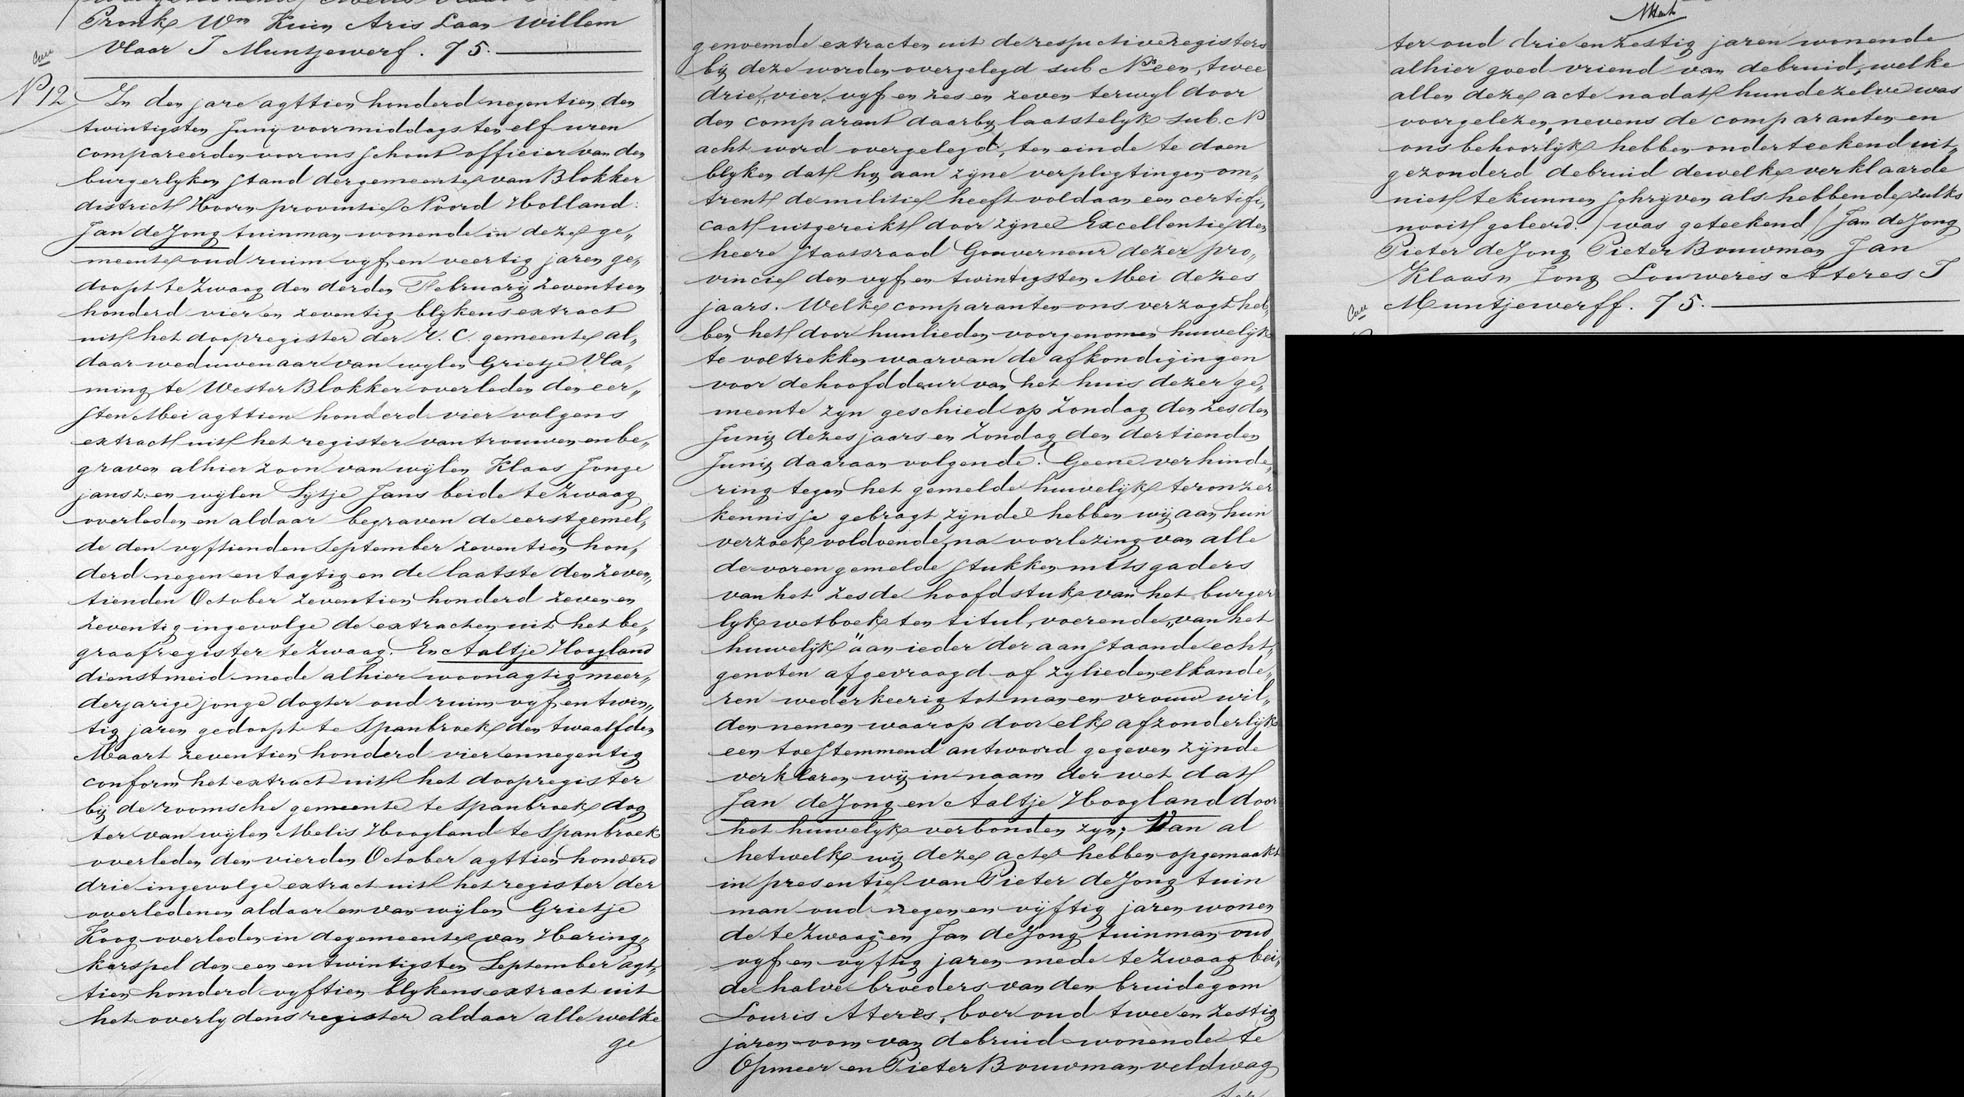 Pronk Wm Kuin Aris Laan Willem
Vlaar J Muntjewerf. 75.
No 12
In den jare agttien honderd negentien den
twintigsten Junij voormiddags ten elf uren
compareerden voor ons schout officier van den
burgerlyken stand der gemeente van Blokker
district Hoorn provintie Noord Holland:
Jan de Jong tuinman wonende in deze ge„
meente oud ruim vyf en veertig jaren ge„
doopt te Zwaag den derden February zeventien
honderd vier en zeventig blykens extract
uit het doopregister der R. C. gemeente al„
daar weduwenaar van wylen Grietje Vla„
ming te Wester Blokker overleden den eer„
sten Mei agttien honderd vier volgens
extract uit het register van trouwen en be„
graven alhier zoon van wijlen Klaas Jonge
jansz: en wijlen Sytje Jans beide te Zwaag
overleden en aldaar begraven de eerstgemel„
de den vyftienden September zeventien hon„
derd negen en tagtig en de laatste den zeven„
tienden October zeventien honderd zeven en
zeventig ingevolge de extracten uit het be„
graafregister te Zwaag. En Aaltje Hoogland
dienstmeid mede alhier woonagtig meer„
derjarige jonge dogter oud ruim vyf en twin„
tig jaren gedoopt te Spanbroek den twaalfden
Maart zeventien honderd vier en negentig
conform het extract uit het doopregister
bij de roomsche gemeente te Spanbroek dog
ter van wijlen Melis Hoogland te Spanbroek
overleden den vierden October agttien honderd
drie ingevolge extract uit het register der
overledenen aldaar en van wylen Grietje
Koog overleden in de gemeente van Haring„
karspel den een en twintigsten September agt„
tien honderd vyftien blykens extract uit
het overlydens register aldaar alle welke
ge
genoemde extracten uit de respectivé registers
bij deze worden overgelegd sub No een, twee
drie, vier, vyf en zes en zeven terwyl door
den comparant daarbij laatstelyk sub. No
acht word overgelegd, ten einde te doen
blyken dat hy aan zyne verplegtingen om„
trent de militie heeft voldaan een certifi„
caat uitgereikt door zijne Excellentie den
heere Staatsraad Gouverneur dezer pro„
vincie den vyf en twintigsten Mei dezes
jaars. Welke comparanten ons verzogt heb„
ben het door hunlieden voorgenomen huwelijk
te voltrekken waarvan de afkondigingen
voor de hoofddeur van het huis dezer ge„
meente zyn geschied op Zondag den zesden
Junij dezes jaars en Zondag den dertienden
Junij daaraan volgende. Geene verhinde„
ring tegen het gemelde huwelijk ter onzer
kennisse gebragt zijnde hebben wij aan hun
verzoek voldoende, na voorlezing van alle
de voren gemelde stukken mitsgaders
van het zesde hoofdstuk van het burger
lyk wetboek ten titul, voerende, „van het
huwelijk” aan ieder der aanstaande echt„
genoten afgevraagd of zylieden elkande„
ren wederkeerig tot man en vrouw wil„
den nemen waarop door elk afzonderlijk
een toestemmend antwoord gegeven zijnde
verklaren wij in naam der wet dat
Jan de Jong en Aaltje Hoogland door
het huwelyk verbonden zyn; Van al
hetwelk wij deze acte hebben opgemaakt
in presentie van Pieter de Jong tuin
man oud negen en vijftig jaren wonen
de te Zwaag en Jan de Jong tuinman oud
vyf en vyftig jaren mede te Zwaag bei„
de halve broeders van den bruidegom
Louris Ateres, boer oud twee en zestig
jaren oom van de bruid wonende te
Opmeer en Pieter Bouwman veldwag
ter oud drie en zestig jaren wonende
alhier goed vriend van de bruid, welke
allen deze acte nadat hun dezelve was
voorgelezen, nevens de comparanten en
ons behoorlijk hebben onderteekend uit„
gezonderd de bruid dewelke verklaarde
niet te kunnen schryven als hebbende zulks
nooit geleerd. /was geteekend/ Jan de Jong
Pieter de Jong Pieter Bouwman Jan
Klaasn Jong Louweris Ateres J
Muntjewerff. 75.